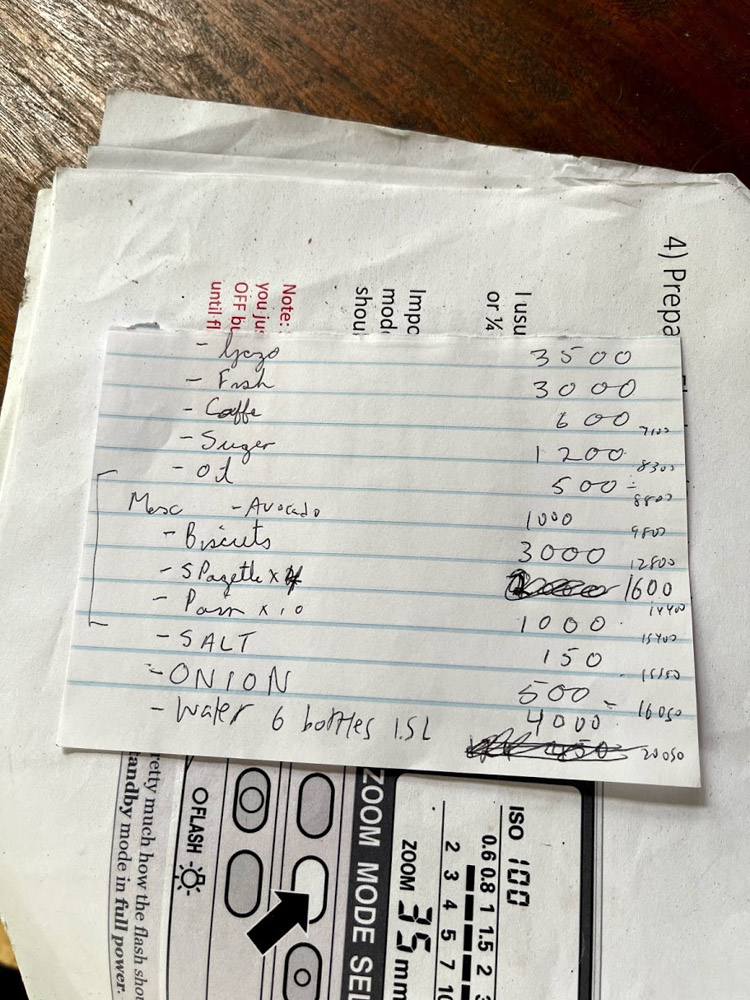 4) Prepa
I usu
or ¼
Impo
mode
shoul
Note:
you jus
OFF bu
until fl
- Gazo 3500
- Fish 3000
- Caffe 600 7100
- Suger 1200 8300
- oil 500 = 8800
Mesc - Avocado 1000 9800
- Biscuits 3000 12800
- SPagette x 1600 14400
- Pam x 10 1000 15400
- SALT 150 15550
- ONION 500 = 16050
- Water 6 bottles 1.5L 4000 20050
ISO 100
0.6 0.8 1 1.5 2 3
2 3 4 5 7 10
ZOOM 35 mm
ZOOM MODE SEL
FLASH
retty much how the flash shou
tandby mode in full power.